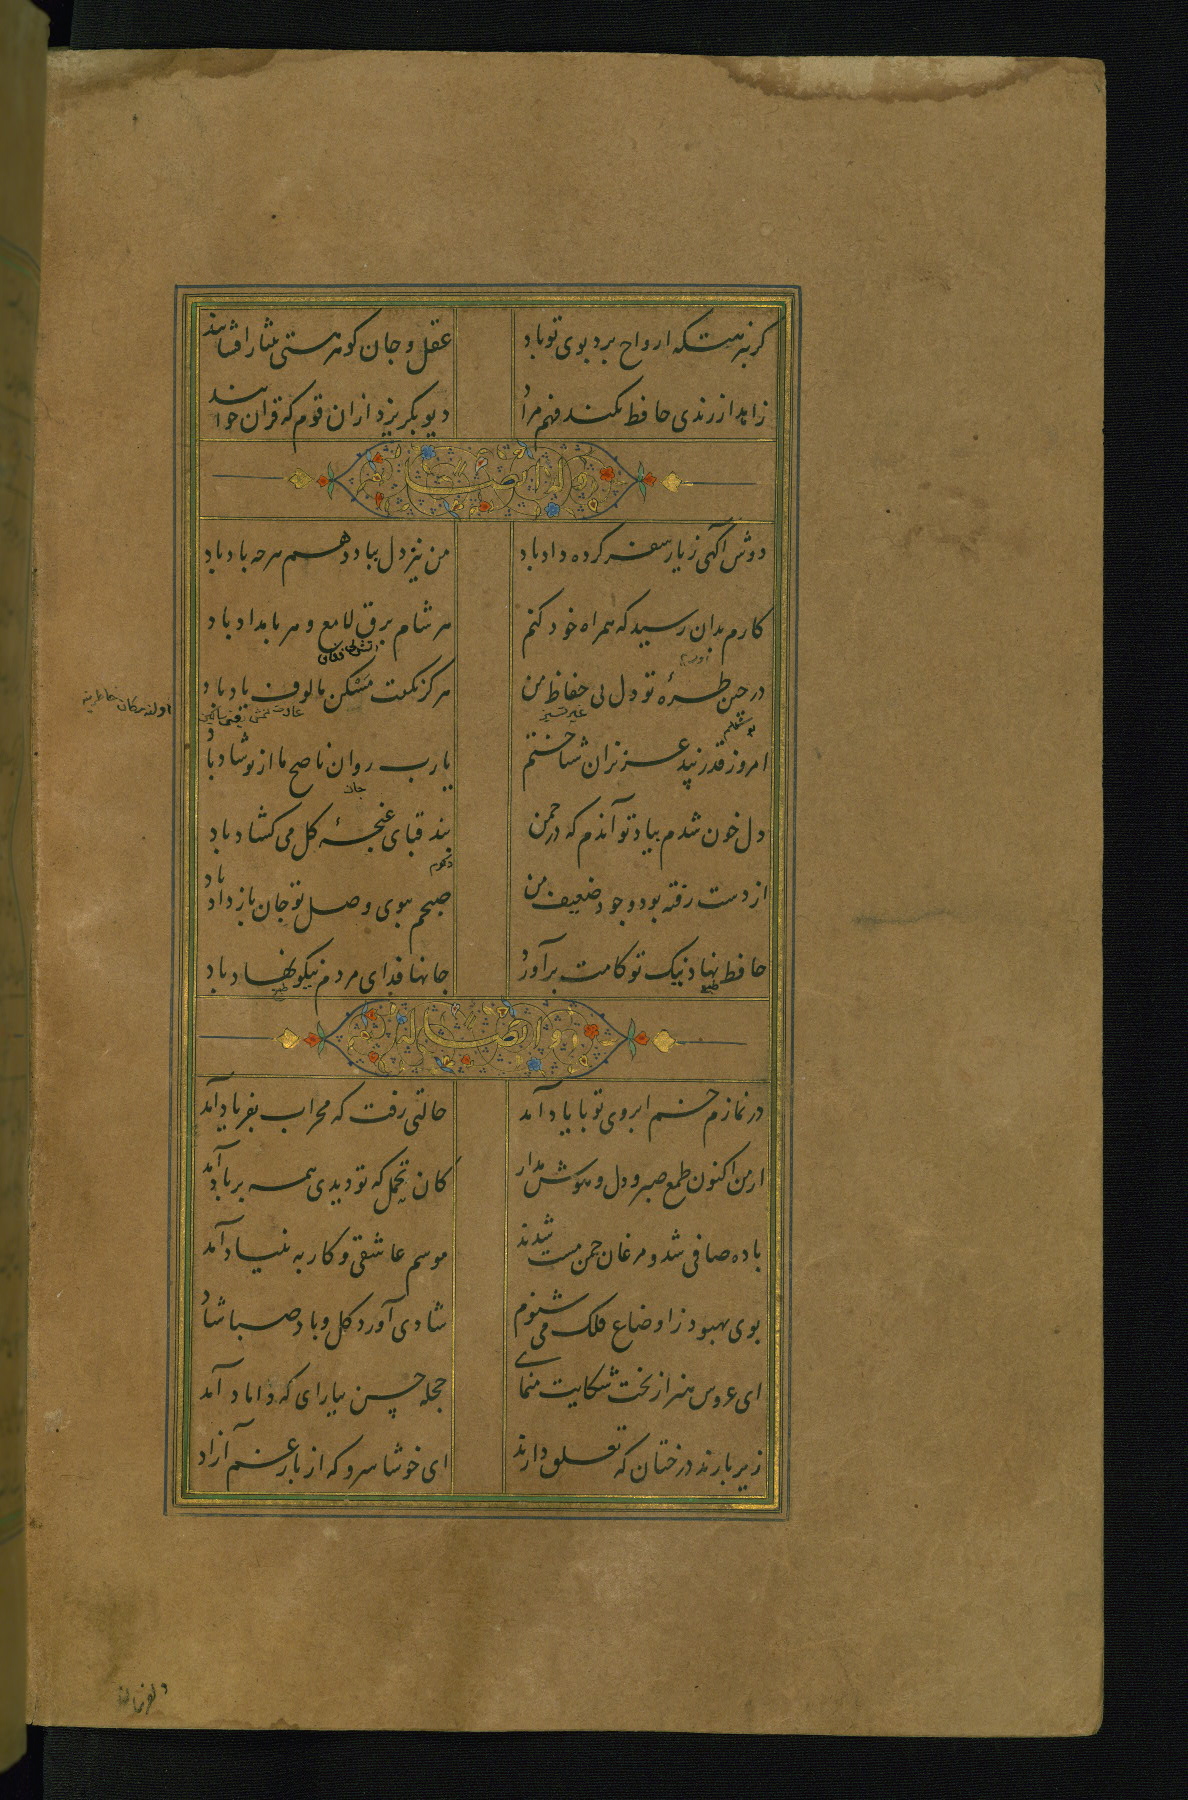 کر بنزهتکه ارواح برد بوی تو باد
عقل و جان کوهر هستی بنثار افشانند
زاهد از رندی حافظ نکند فهم مراد
دیو بکریزد از ان قوم که قران خوانند
وله ایضا
دوش آکهی ز یار سفر کرده داد باد
من نیز دل بباد دهم هرچه باد باد
کارم بدان رسید که همراه خود کنم
هر شام برق لامع و هر بامداد باد
در چین طرهٔ تو دل بی حفاظ من
هرکز نکفت مسکن مالوف یاد باد
امروز قدر پند عزیزان شناختم
یارب روان ناصح ما از تو شاد باد
جان
دل خون شدم بیاد تو آندم که در چمن
بند قبای غنچهٔ کل می کشاد باد
از دست رفته بود وجود ضعیف من
صبحم ببوی وصل تو جان باز داد باد
حافظ نهاد نیک تو کامت برآورد
جانها فدای مردم نیکو نهاد باد
طبع
طبع
وله ایضا
در نمازم خم ابروی تو با یاد آمد
حالتی رفت که محراب بفریاد آمد
از من اکنون طمع صبر و دل و هوش مدار
کان تحمل که تو دیدی همه بر باد آمد
باده صافی شد و مرغان چمن مست شدند
موسم عاشقی و کار به بنیاد آمد
بوی بهبود ز اوضاع فلک می شنوم
شادی آورد کل و باد صبا شاد
ای عروس هنر از بخت شکایت منمای
حجله حسن بیارای که داماد آمد
زیر بارند درختان که تعلق دارند
ای خوشا سرو که از بار غم آزاد